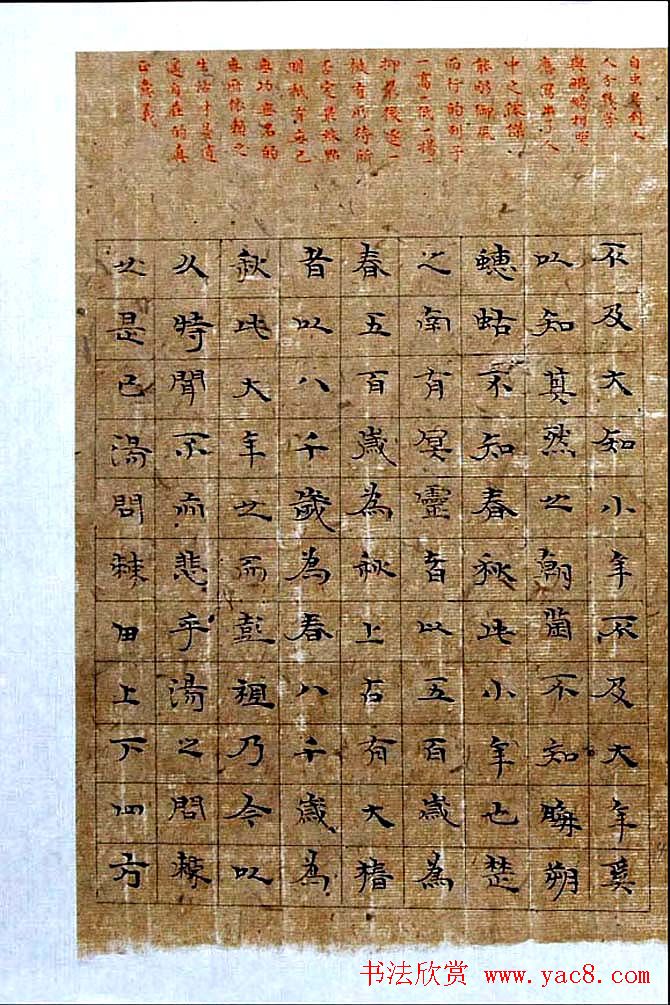 自虫鳥到人
人分幾等
與鵬鷃相照
應寫出了人
中之俊傑
能够御風
而行的列子
一高一低一揚
一抑最後逐一
被有所待所
否定果放點
明祗有無己
無功無名的
無所依賴之
生活才是逍
遙自在的真
正意義
不及大知小年不及大年奚
以知其然也朝菌不知晦朔
蟪蛄不知春秋此小年也楚
之南有冥靈者以五百歲為
春五百歲為秋上古有大椿
者以八千歲為春八千歲為
秋此大年也而彭祖乃今以
久特聞不而悲乎湯之問棘
也是已湯問棘曰上下四方
书法欣赏 www.yac8.com